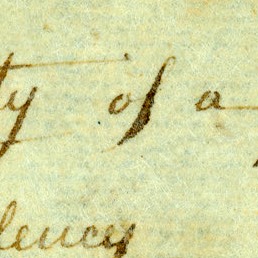 ty of a
lency